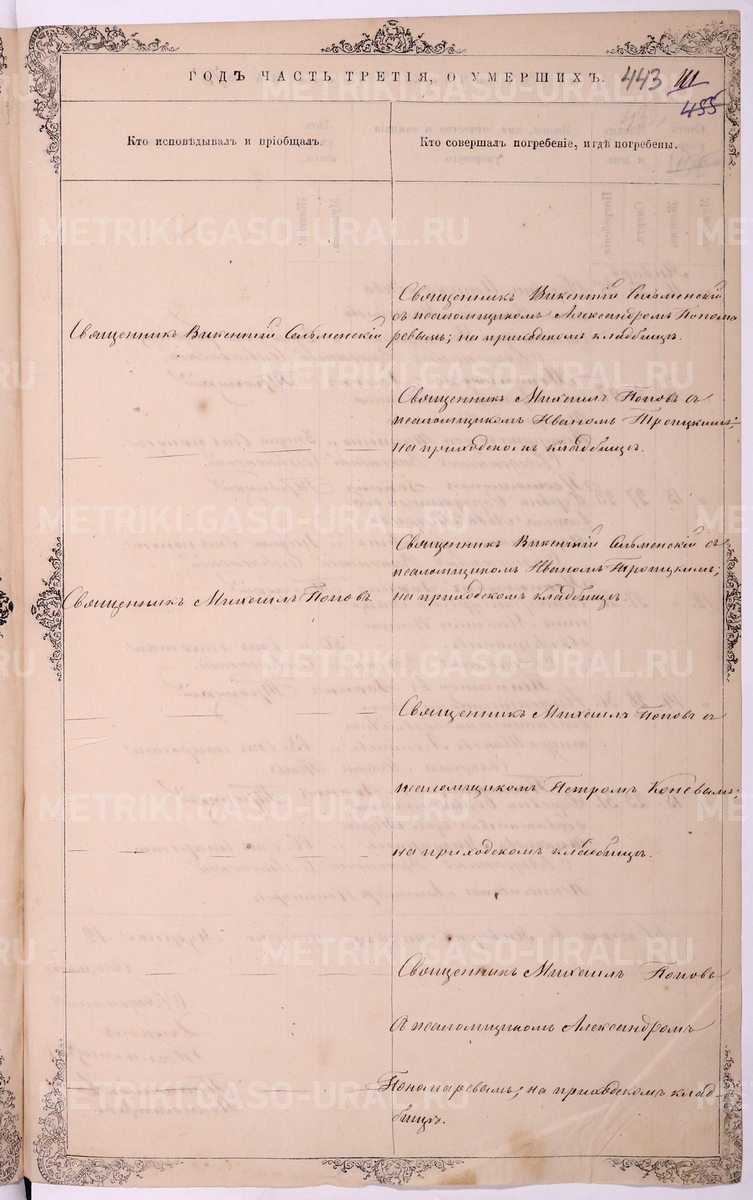 ГОДЪ ЧАСТЬ ТРЕТІЯ, О УМЕРШИХЪ. 443 III
455
Кто исповѣдывалъ и пріобщалъ.
Кто совершалъ погребеніе, и гдѣ погребены.
Священникъ Викентій Сельменскій
Священникъ Викентій Сельменскій
съ псаломщикомъ Александромъ Понома
ревымъ; на приходскомъ кладбищѣ.
Священникъ Михаилъ Поповъ съ
псаломщикомъ Иваномъ Троицкимъ;
на приходскомъ кладбищѣ.
Священникъ Викентій Сельменскій съ
псаломщикомъ Иваномъ Троицкимъ;
на приходскомъ кладбищѣ.
Священникъ Михаилъ Поповъ.
Священникъ Михаилъ Поповъ съ
псаломщикомъ Петромъ Коневымъ;
на приходскомъ кладбищѣ.
Священникъ Михаилъ Поповъ
съ псаломщикомъ Александромъ
Пономаревымъ; на приходскомъ клад-
бищѣ.
METRIKI.GASO-URAL.RU